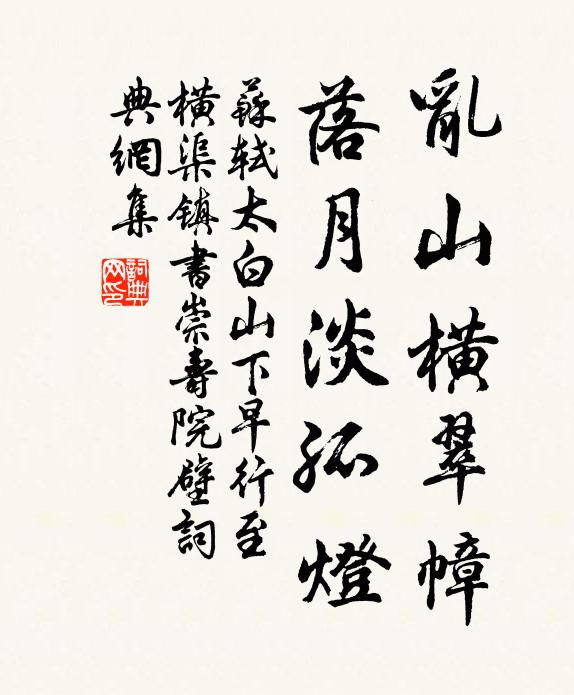 亂山橫翠幛
落月淡孤燈
蘇軾太白山下早行至
橫渠镇書崇壽院壁詞
典網集
詞典网印